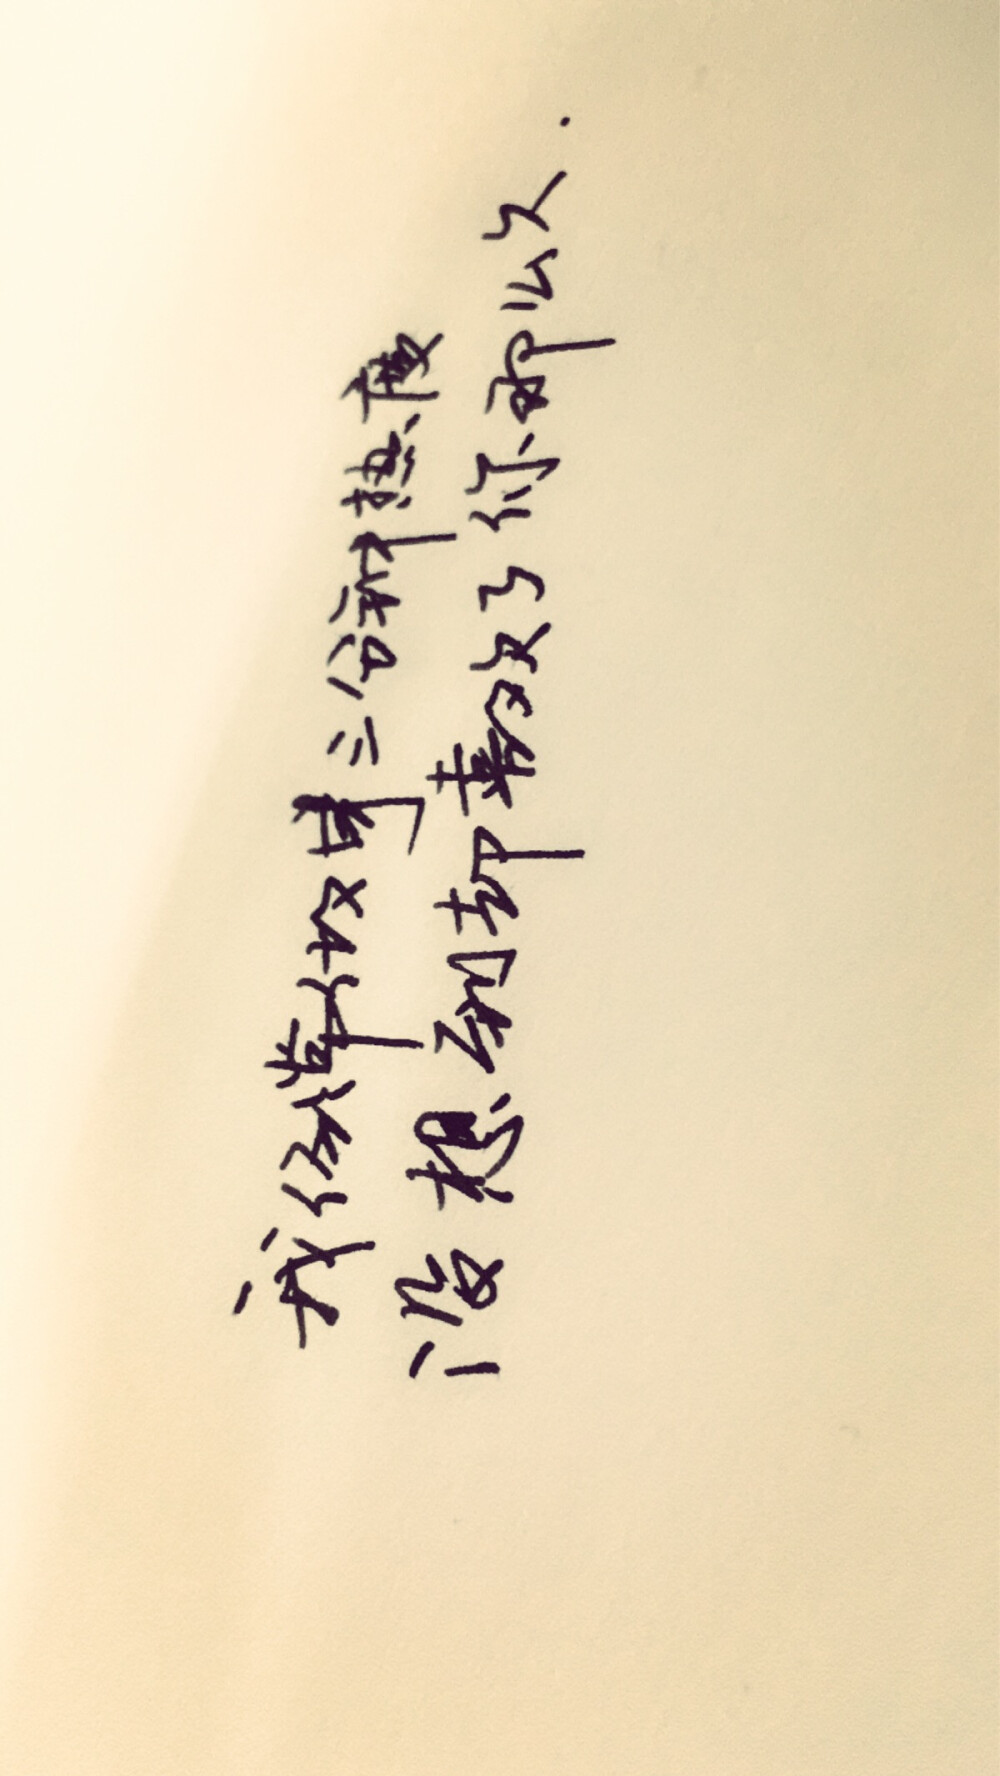 我任算做事三分钟热度
没想到却喜欢了你那么久.